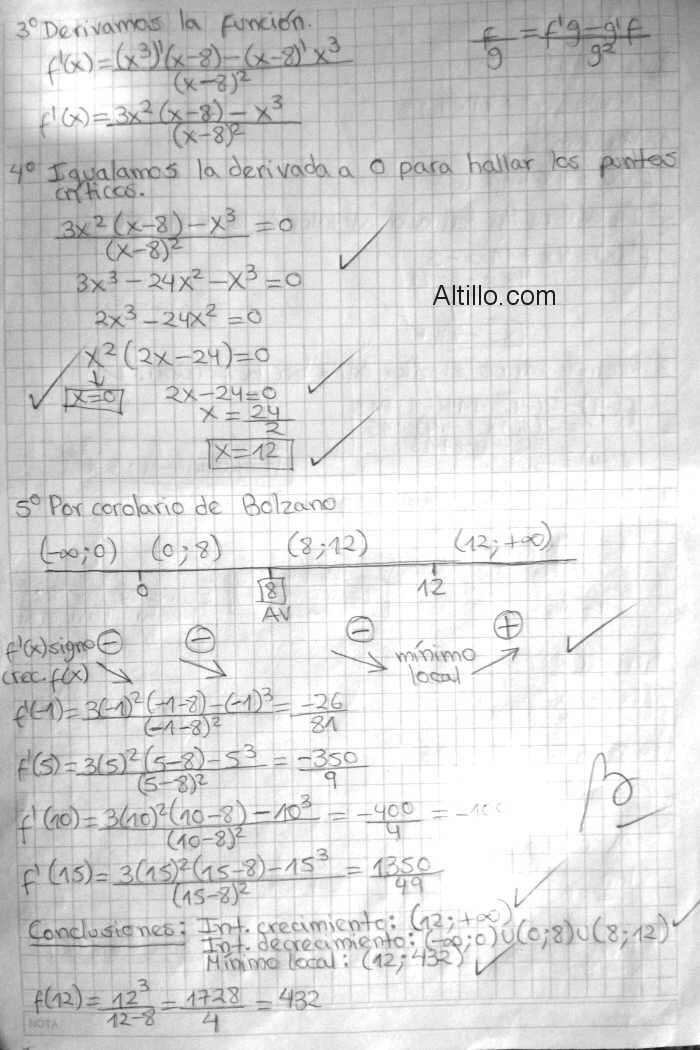 3º Derivamos la función.
f'(x)=(x³)'(x-8)-(x-8)'x³/(x-8)²
f/g = f'g-g'f/g²
f'(x)=3x²(x-8)-x³/(x-8)²
4º Igualamos la derivada a 0 para hallar los puntos
críticos.
3x²(x-8)-x³/(x-8)² =0
3x³-24x²-x³=0
Altillo.com
2x³-24x²=0
x²(2x-24)=0
x=0 2x-24=0
x=24/2
x=12
5º Por corolario de Bolzano
(-∞;0) (0;8) (8;12) (12;+∞)
0 8 12
AV
f'(x)signo - - - +
crec. f(x) ↘ ↘ ↘ mínimo ↗
local
f'(-1)=3(-1)²(-1-8)-(-1)³/(-1-8)² = -26/81
f'(5)=3(5)²(5-8)-5³/(5-8)² = -350/9
f'(10)=3(10)²(10-8)-10³/(10-8)² = -400/4 =
f'(15)=3(15)²(15-8)-15³/(15-8)² = 1350/49
Conclusiones: Int. crecimiento: (12;+∞)
Int. decrecimiento: (-∞;0)∪(0;8)∪(8;12)
Mínimo local: (12;432)
f(12)=12³/12-8 = 1728/4 = 432
NOTA